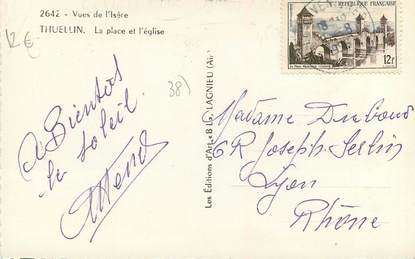 12€
2642 - Vues de l'Isère
THUELLIN. La place et l'église
38)
A Bientôt
le soleil
Les Éditions d'Art "B LAGNIEU (Ain)
RÉPUBLIQUE FRANÇAISE
12F
Madame Dubour
6 R Joseph Serlin
Lyon
Rhône